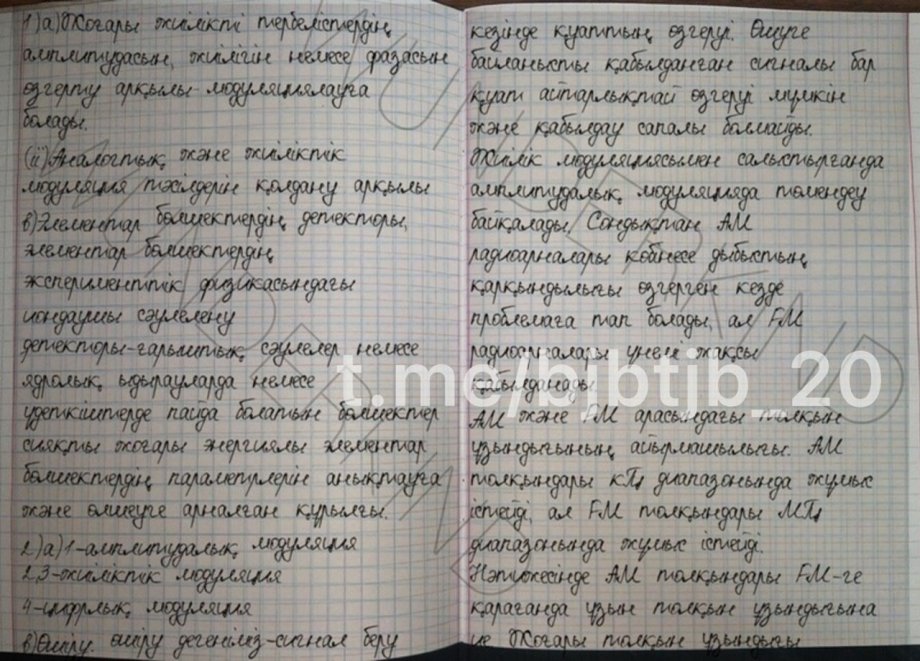 1) а) Жоғары жиілікті тербелістердің
амплитудасын, жиілігін немесе фазасын
өзгерту арқылы модуляциялауға
болады.
(ii) Аналогтық және жиіліктік
модуляция тәсілдерін қолдану арқылы
в) Элементар бөлшектердің детекторы,
элементар бөлшектердің
эксперименттік физикасындағы
иондаушы сәулелену
детекторы-ғарыштық сәулелер немесе
ядролық ыдырауларда немесе
үдеткіштерде пайда болатын бөлшектер
сияқты жоғары энергиялы элементар
бөлшектердің параметрлерін анықтауға
және өлшеуге арналған құрылғы.
2) а) 1-амплитудалық модуляция
2.3-жиіліктік модуляция
4-цифрлық модуляция
в) Өшіру. өшіру дегеніміз-сигнал беру
кезінде қуаттың өзгеруі. Өшуге
байланысты қабылданған сигналы бар
қуат айтарлықтай өзгеруі мүмкін
және қабылдау сапалы болмайды.
Жиілік модуляциясымен салыстырғанда
амплитудалық модуляцияда төмендеу
байқалады. Сондықтан АМ
радиоарналары көбінесе дыбыстың
қарқындылығы өзгерген кезде
проблемаға тап болады, ал FM
радиоарналары үнемі жақсы
қабылданады
АМ және FM арасындағы толқын
ұзындығының айырмашылығы. АМ
толқындары кГц диапазонында жұмыс
істейді, ал FM толқындары МГц
диапазонында жұмыс істейді.
Нәтижесінде АМ толқындары FM-ге
қарағанда ұзын толқын ұзындығына
ие Жоғары толқын ұзындығы
t.me/bjbtjb_20